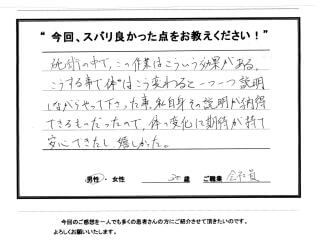 “ 今回、スバリ良かった点をお教えください！”
施術の中で、この作業はこういう効果がある、
こうする事で体はこう変わると一つ一つ説明
しながらやって下さった事。私自身その説明が納得
できるものだったので、体の変化に期待が持て
安心できたし、嬉しかった。
男性・女性 歳 ご職業 会社員
今回のご感想を一人でも多くの患者さんの方にご紹介させて頂きたいのです。
よろしくお願いいたします。